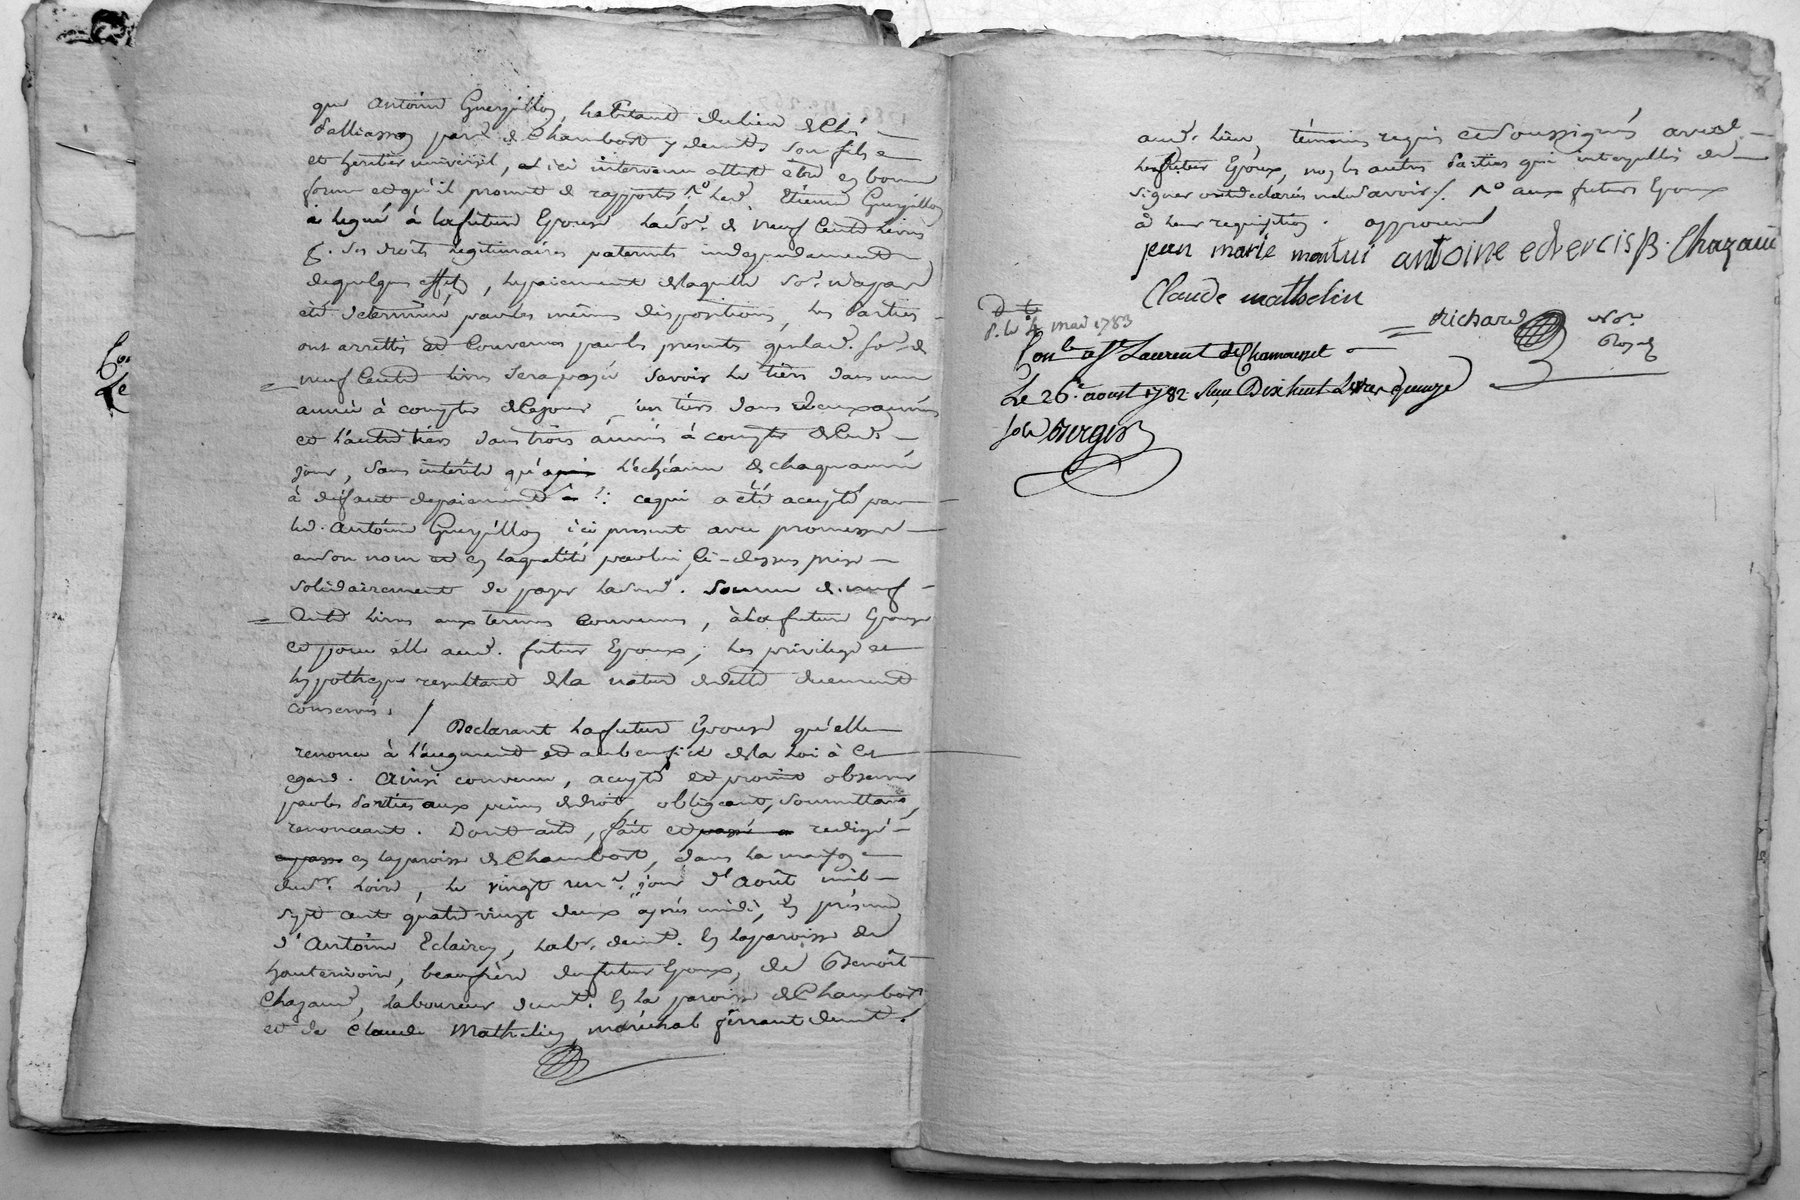 que Antoine Guerpillon, habitant du lieu de Ché
dalliasson parse de Chambost y demeurt. son fils
et heritier universel, et ici intervenu atteste etre en bonne
forme et qu'il promet de rapporter. led. Etienne Guerpillon
a legué à la future Epouse la so.e de neuf Cents Livres
p. ses droits legitimaires paternels independamment
de quelques effets, le paiement de laquelle so.e n'ayant
été determiné par les mêmes dispositions, les Parties
ont arretté et Convenus par les presentes, que lad. so.e de
neuf Cents livres sera payée savoir le tiers dans une
année à compter de ce jour, un tiers dans deux années
et l'autre tiers dans trois années à compter de ce d.
jour, sans interêts qu'après l'echéance de chaque année
à deffaut de paiement : ce qui a été accepté par
led. Antoine Guerpillon ici présent avec promesse
en son nom et en la qualité par lui Ci-dessus prise
solidairement de payer lad. somme de neuf
Cents livres aux termes Convenus, à la future Epouse
et pour elle aud. futur Epoux, les privilege et
hypotheque resultant de la nature de dette demeurant
conservés. / Declarant la future Epouse qu'elle
renonce à l'augment et au benefice de la Loi à Cet
egard. Ainsi convenu, accepté et promis observer
par les Parties aux peines de droit, obligeant, soumettant,
renonceant. Dont acte, fait et passé redigé
en la paroisse de Chambost, dans la maison
du sr. Loire, le vingt un.e jour d'Août mil
sept cents quatre vingt deux après midi, en présence
d'Antoine Eclaircy, Labr. demt. en la paroisse de
hauterivoire, beaufrère du futur Epoux, de Benoît
Chazaud, Laboureur demt. en la paroisse de Chambost
et de Claude Mathelin, maréchal ferrant demt.
aud. Lieu, témoins requis et soussignés avec le
futur Epoux, non les autres Parties qui interpellés de
signer ont déclarés ne le savoir ./. aux futurs Epoux
à leur requisition. approuvant
jean marie montui antoine eclercis B. Chazaud
Claude mathelin
Richard Nore Royal
4 mai 1783
Conlé a St Laurent de Chamousset
Le 26.e aout 1782 Reçu Dix huit Livres quinze
sols Bergeron